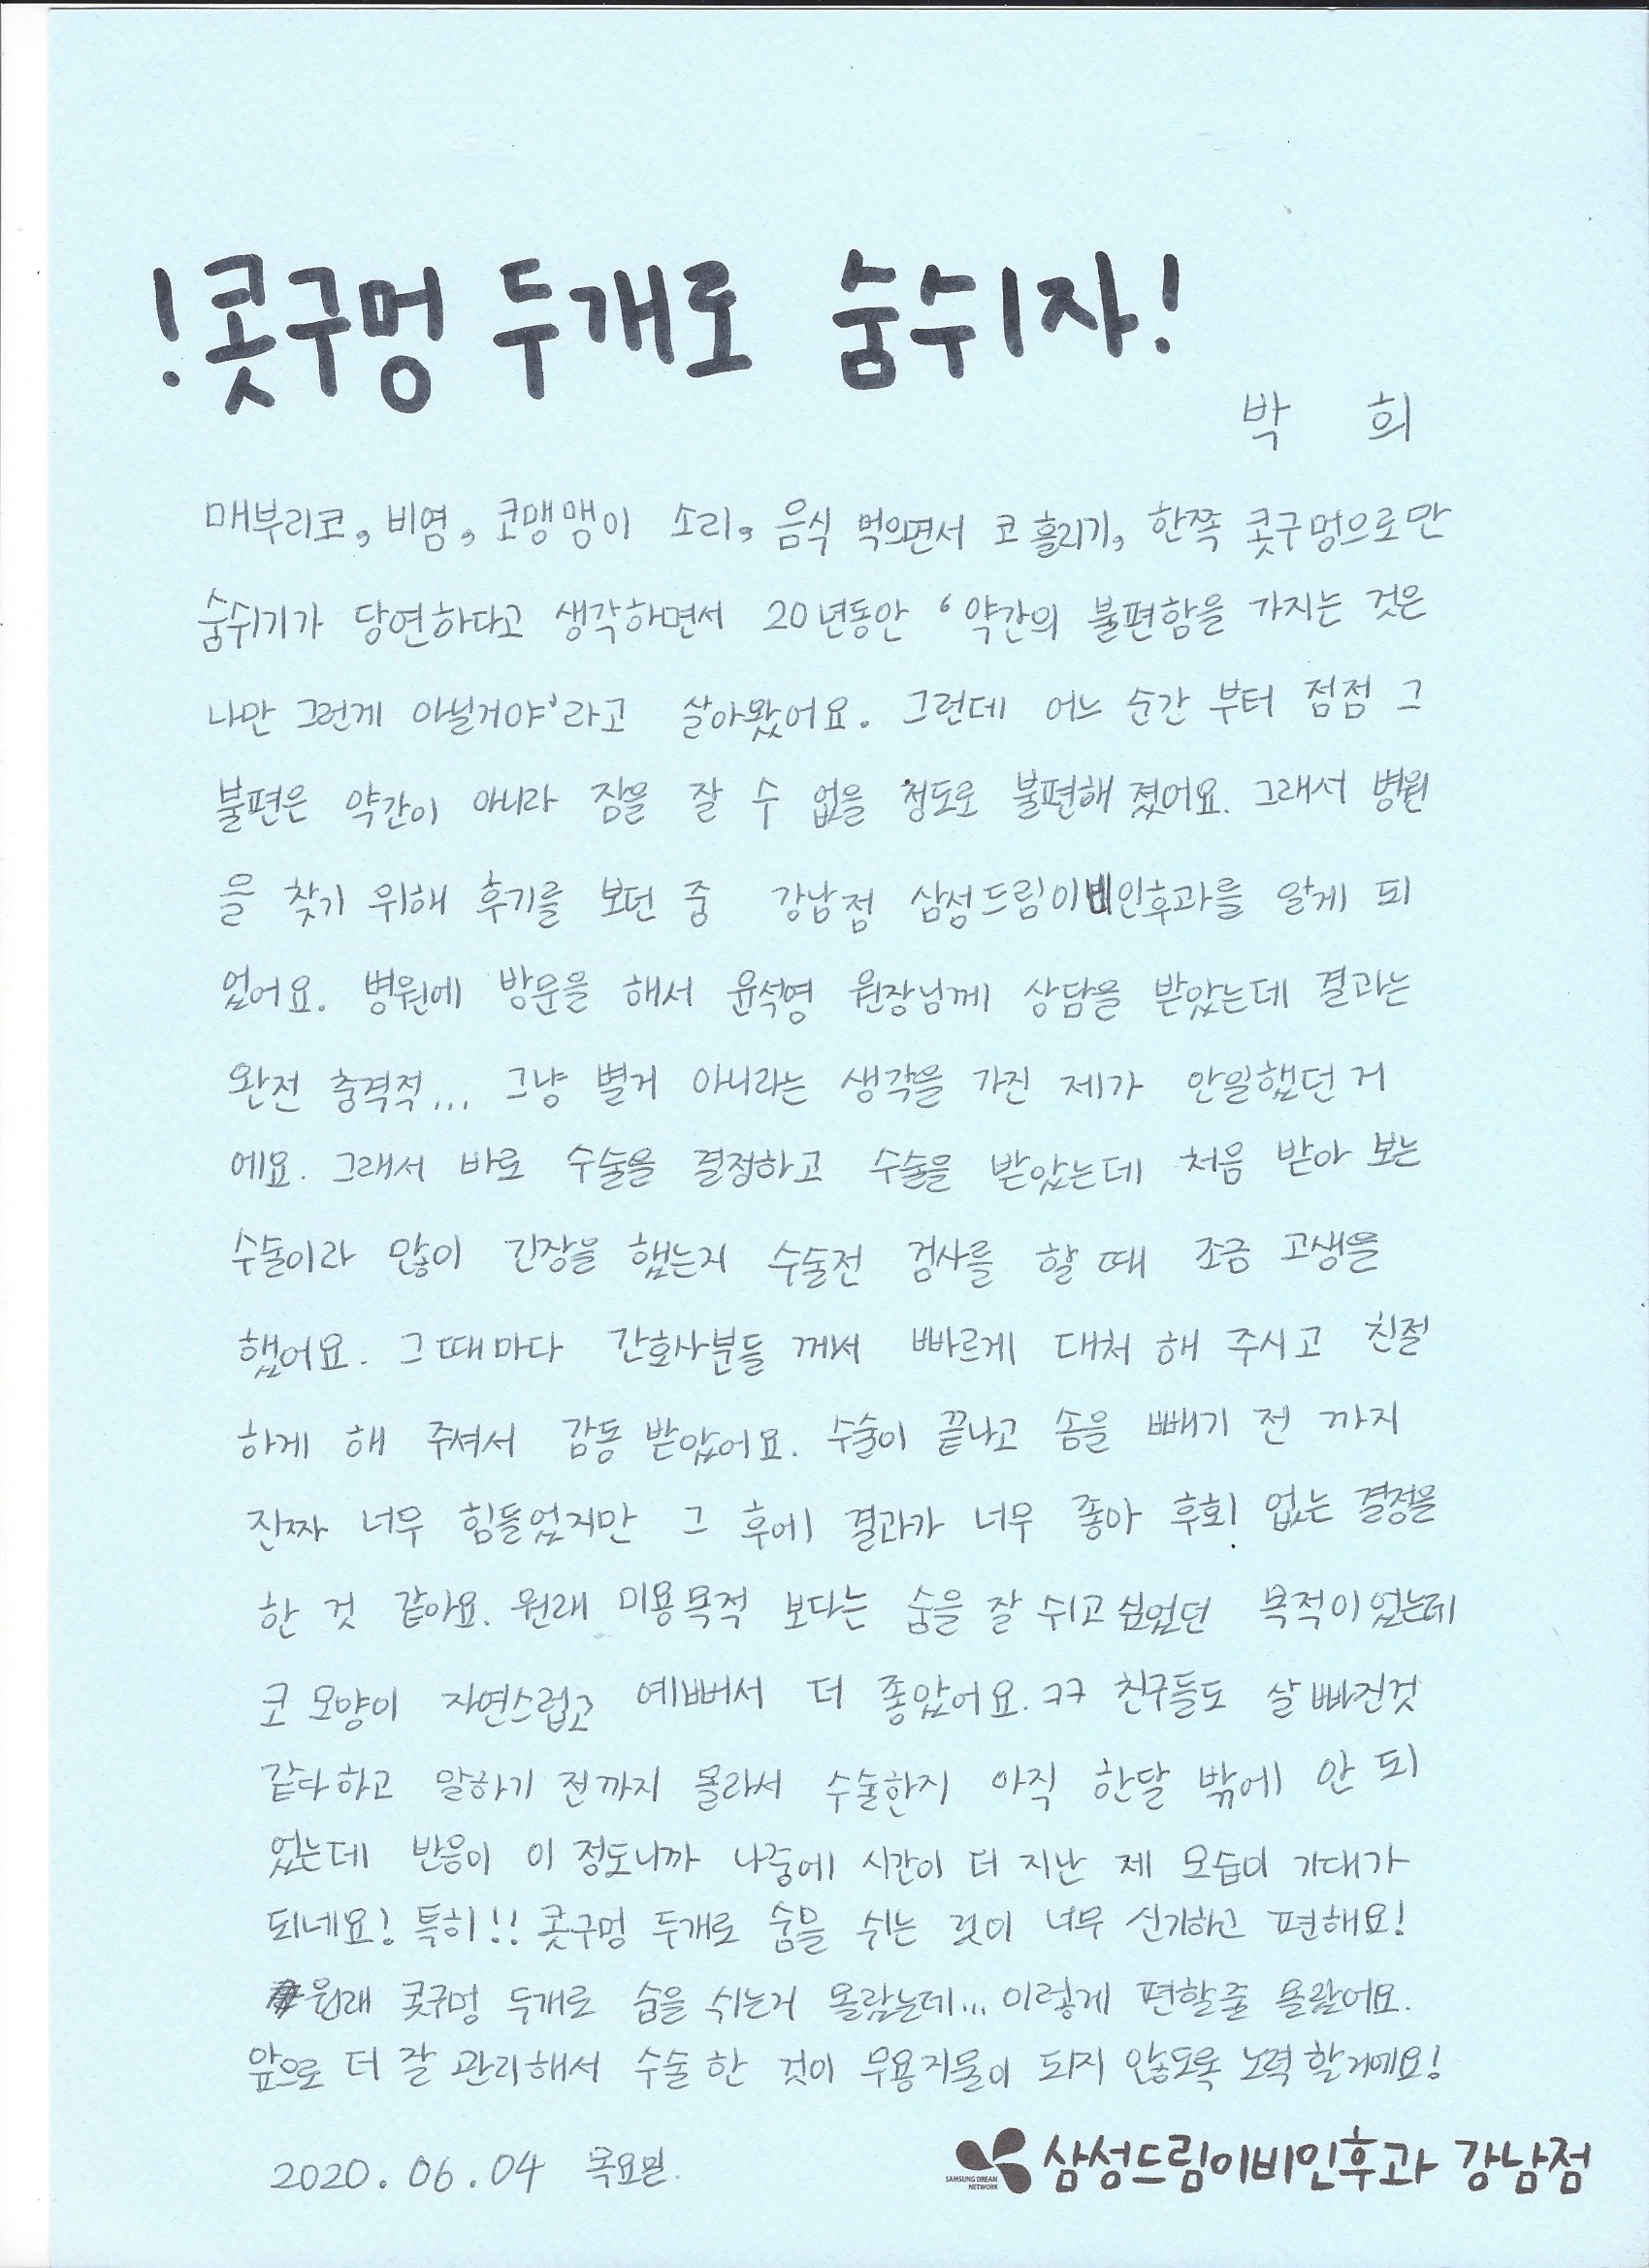 !콧구멍 두개로 숨쉬자!
박 희
매부리코, 비염, 코맹맹이 소리, 음식 먹으면서 코 흘리기, 한쪽 콧구멍으로만
숨쉬기가 당연하다고 생각하면서 20년동안 '약간의 불편함을 가지는 것은
나만 그런게 아닐거야'라고 살아왔어요. 그런데 어느 순간 부터 점점 그
불편은 약간이 아니라 잠을 잘 수 없을 정도로 불편해 졌어요. 그래서 병원
을 찾기 위해 후기를 보던 중 강남점 삼성드림이비인후과를 알게 되
었어요. 병원에 방문을 해서 윤석영 원장님께 상담을 받았는데 결과는
완전 충격적... 그냥 별거 아니라는 생각을 가진 제가 안일했던 거
에요. 그래서 바로 수술을 결정하고 수술을 받았는데 처음 받아 보는
수술이라 많이 긴장을 했는지 수술전 검사를 할 때 조금 고생을
했어요. 그때마다 간호사분들 께서 빠르게 대처 해 주시고 친절
하게 해 주셔서 감동 받았어요. 수술이 끝나고 솜을 빼기 전 까지
진짜 너무 힘들었지만 그 후에 결과가 너무 좋아 후회 없는 결정을
한 것 같아요. 원래 미용목적 보다는 숨을 잘 쉬고 싶었던 목적이었는데
코 모양이 자연스럽고 예뻐서 더 좋았어요.ㅋㅋ 친구들도 살 빠진것
같다하고 말하기 전까지 몰라서 수술한지 아직 한달 밖에 안 되
었는데 반응이 이 정도니까 나중에 시간이 더 지난 제 모습이 기대가
되네요! 특히!! 콧구멍 두개로 숨을 쉬는 것이 너무 신기하고 편해요!
원래 콧구멍 두개로 숨을 쉬는거 몰랐는데... 이렇게 편할줄 몰랐어요.
앞으로 더 잘 관리해서 수술 한 것이 무용지물이 되지 않도록 노력 할거에요!
2020. 06. 04 목요일.
SAMSUNG DREAM NETWORK 삼성드림이비인후과 강남점